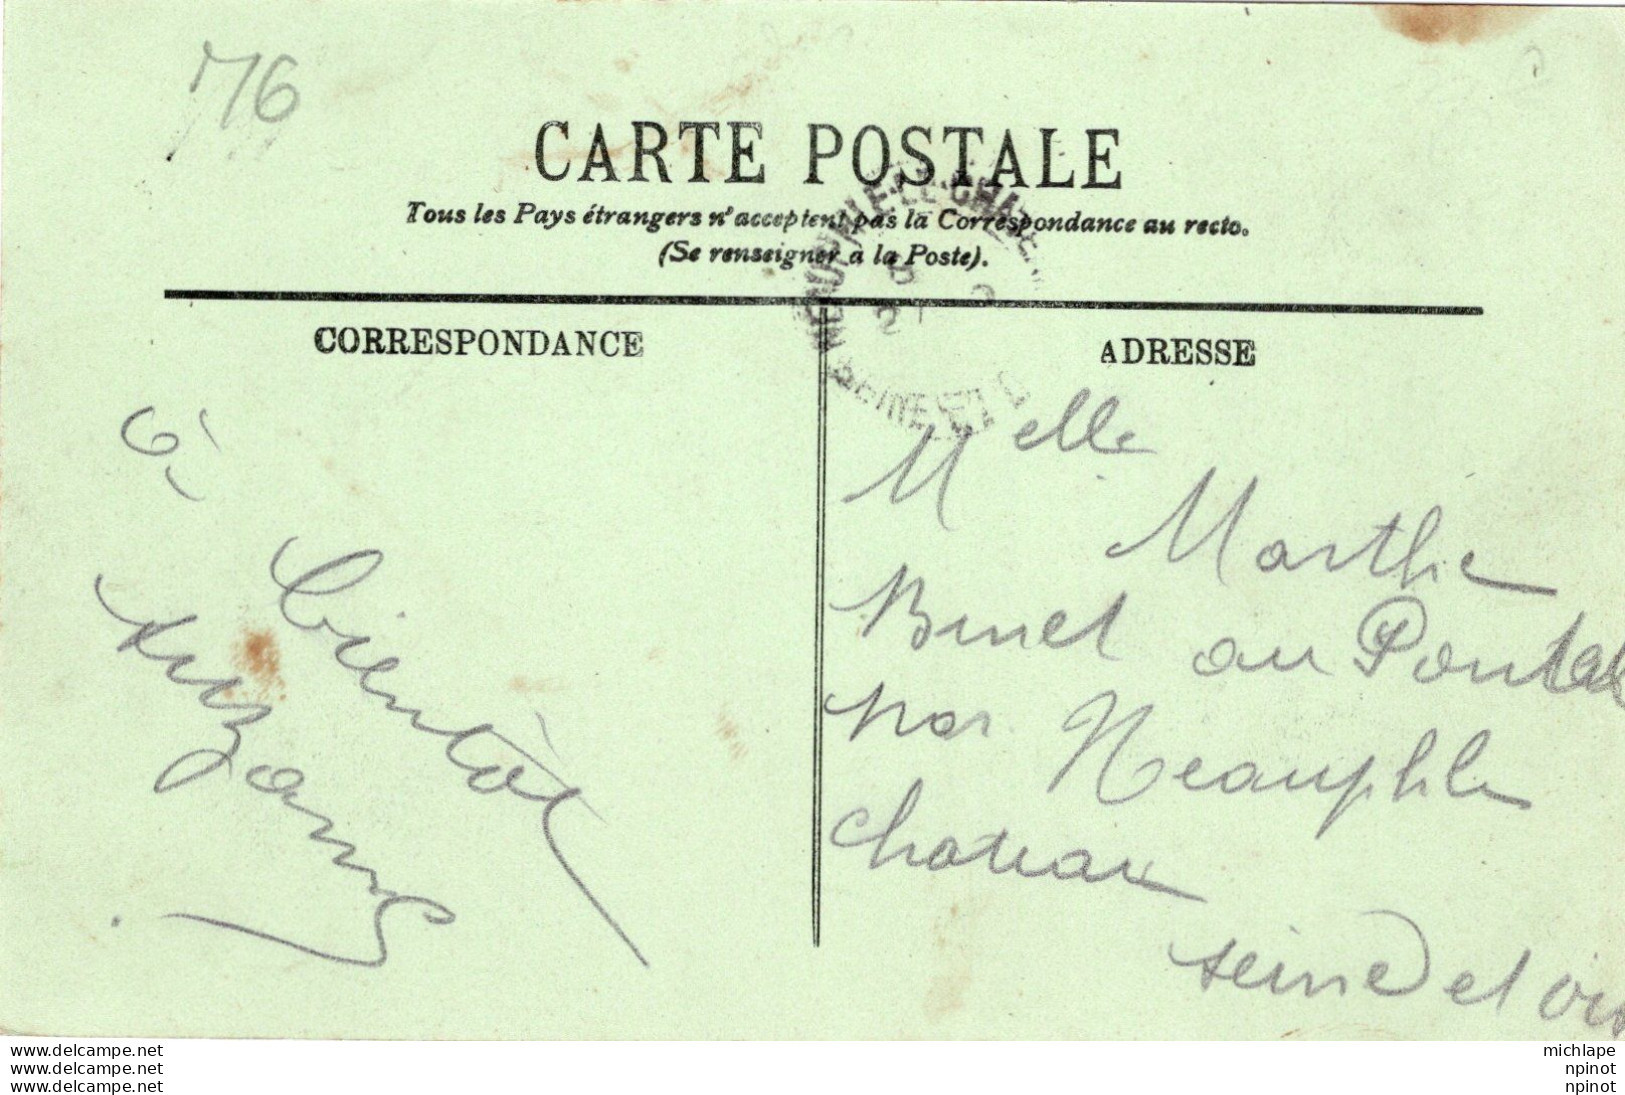 76
CARTE POSTALE
Tous les Pays étrangers n'acceptent pas la Correspondance au recto.
(Se renseigner à la Poste).
CORRESPONDANCE
à
bientôt
Suzanne
ADRESSE
Melle
Marthe
Binet au Pontel
par Neauphle
Chateau
seine et ois
www.delcampe.net
www.delcampe.net
www.delcampe.net
michlape
npinot
npinot